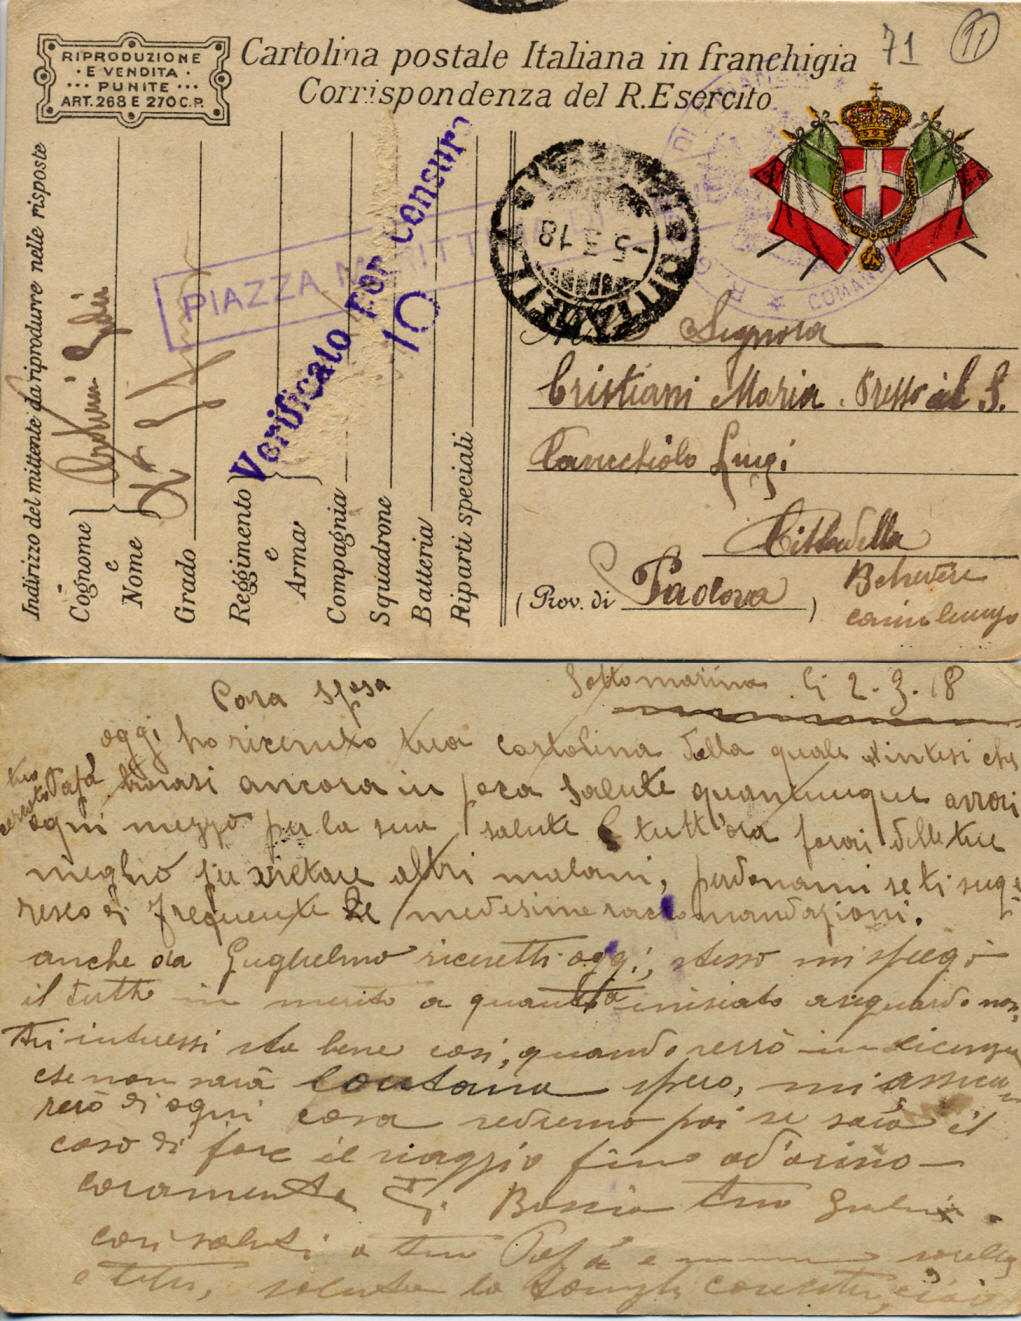 RIPRODUZIONE
E VENDITA
PUNITE
ART. 268 E 270 C.P.
Cartolina postale Italiana in franchigia
Corrispondenza del R. Esercito
71
11
Indirizzo del mittente da riprodurre nelle risposte
Cognome
e
Nome
Grado
Reggimento
e
Arma
Compagnia
Squadrone
Batteria
Riparti speciali
PIAZZA MARITT
Verificato per censura
10
-5. 3. 18
COMAND
Signora
Cristiani Maria. Presso il S.
Luigi
Cittadella
(Prov. di Padova)
Belvedere
Cara sposa
Sottomarina Li 2-3-18
oggi ho ricevuto tua cartolina della quale intesi che
tuo Papà trovasi ancora in poca salute quantunque
ogni mezzo per la sua salute e tutt'ora farai delle tue
meglio per evitare altri malani, perdonami se ti suge
resco di frequente le medesime raccomandazioni.
anche da Guglielmo ricevetti oggi, stesso mi spiegò
il tutto in merito a quanto iniziato a riguardo nos
tri interessi sta bene così, quando verrò in licenza
che non sarà lontana spero, mi assicu
rerò di ogni cosa vedremo poi se sarà il
caso di fare il viaggio fino ad
caramente Ti Bacio tuo
cari saluti a tuo Papà e
e tutti, saluta la